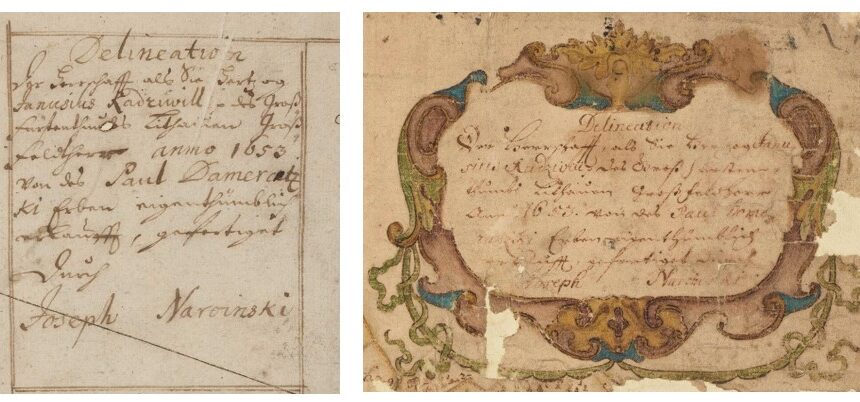 Delineation
Der Herrschafft als Sie Hertzog
Janusius Radziwill, des Groß
fürstenthumbs Litthauen Groß
feldtherr anno 1653
von des Paul Dameratz
ki Erben eigenthümblich
erkaufft, gefertiget
Durch
Joseph Naroinski
Delineation
Der Herrschafft, als Sie Hertzog Janu
sius Radziwil des Groß
thumbs Littauen Groß feldherr
Anno 1653. von des Paul Dame
ratzki Erben eigenthümblich
gefertiget
Joseph Naro